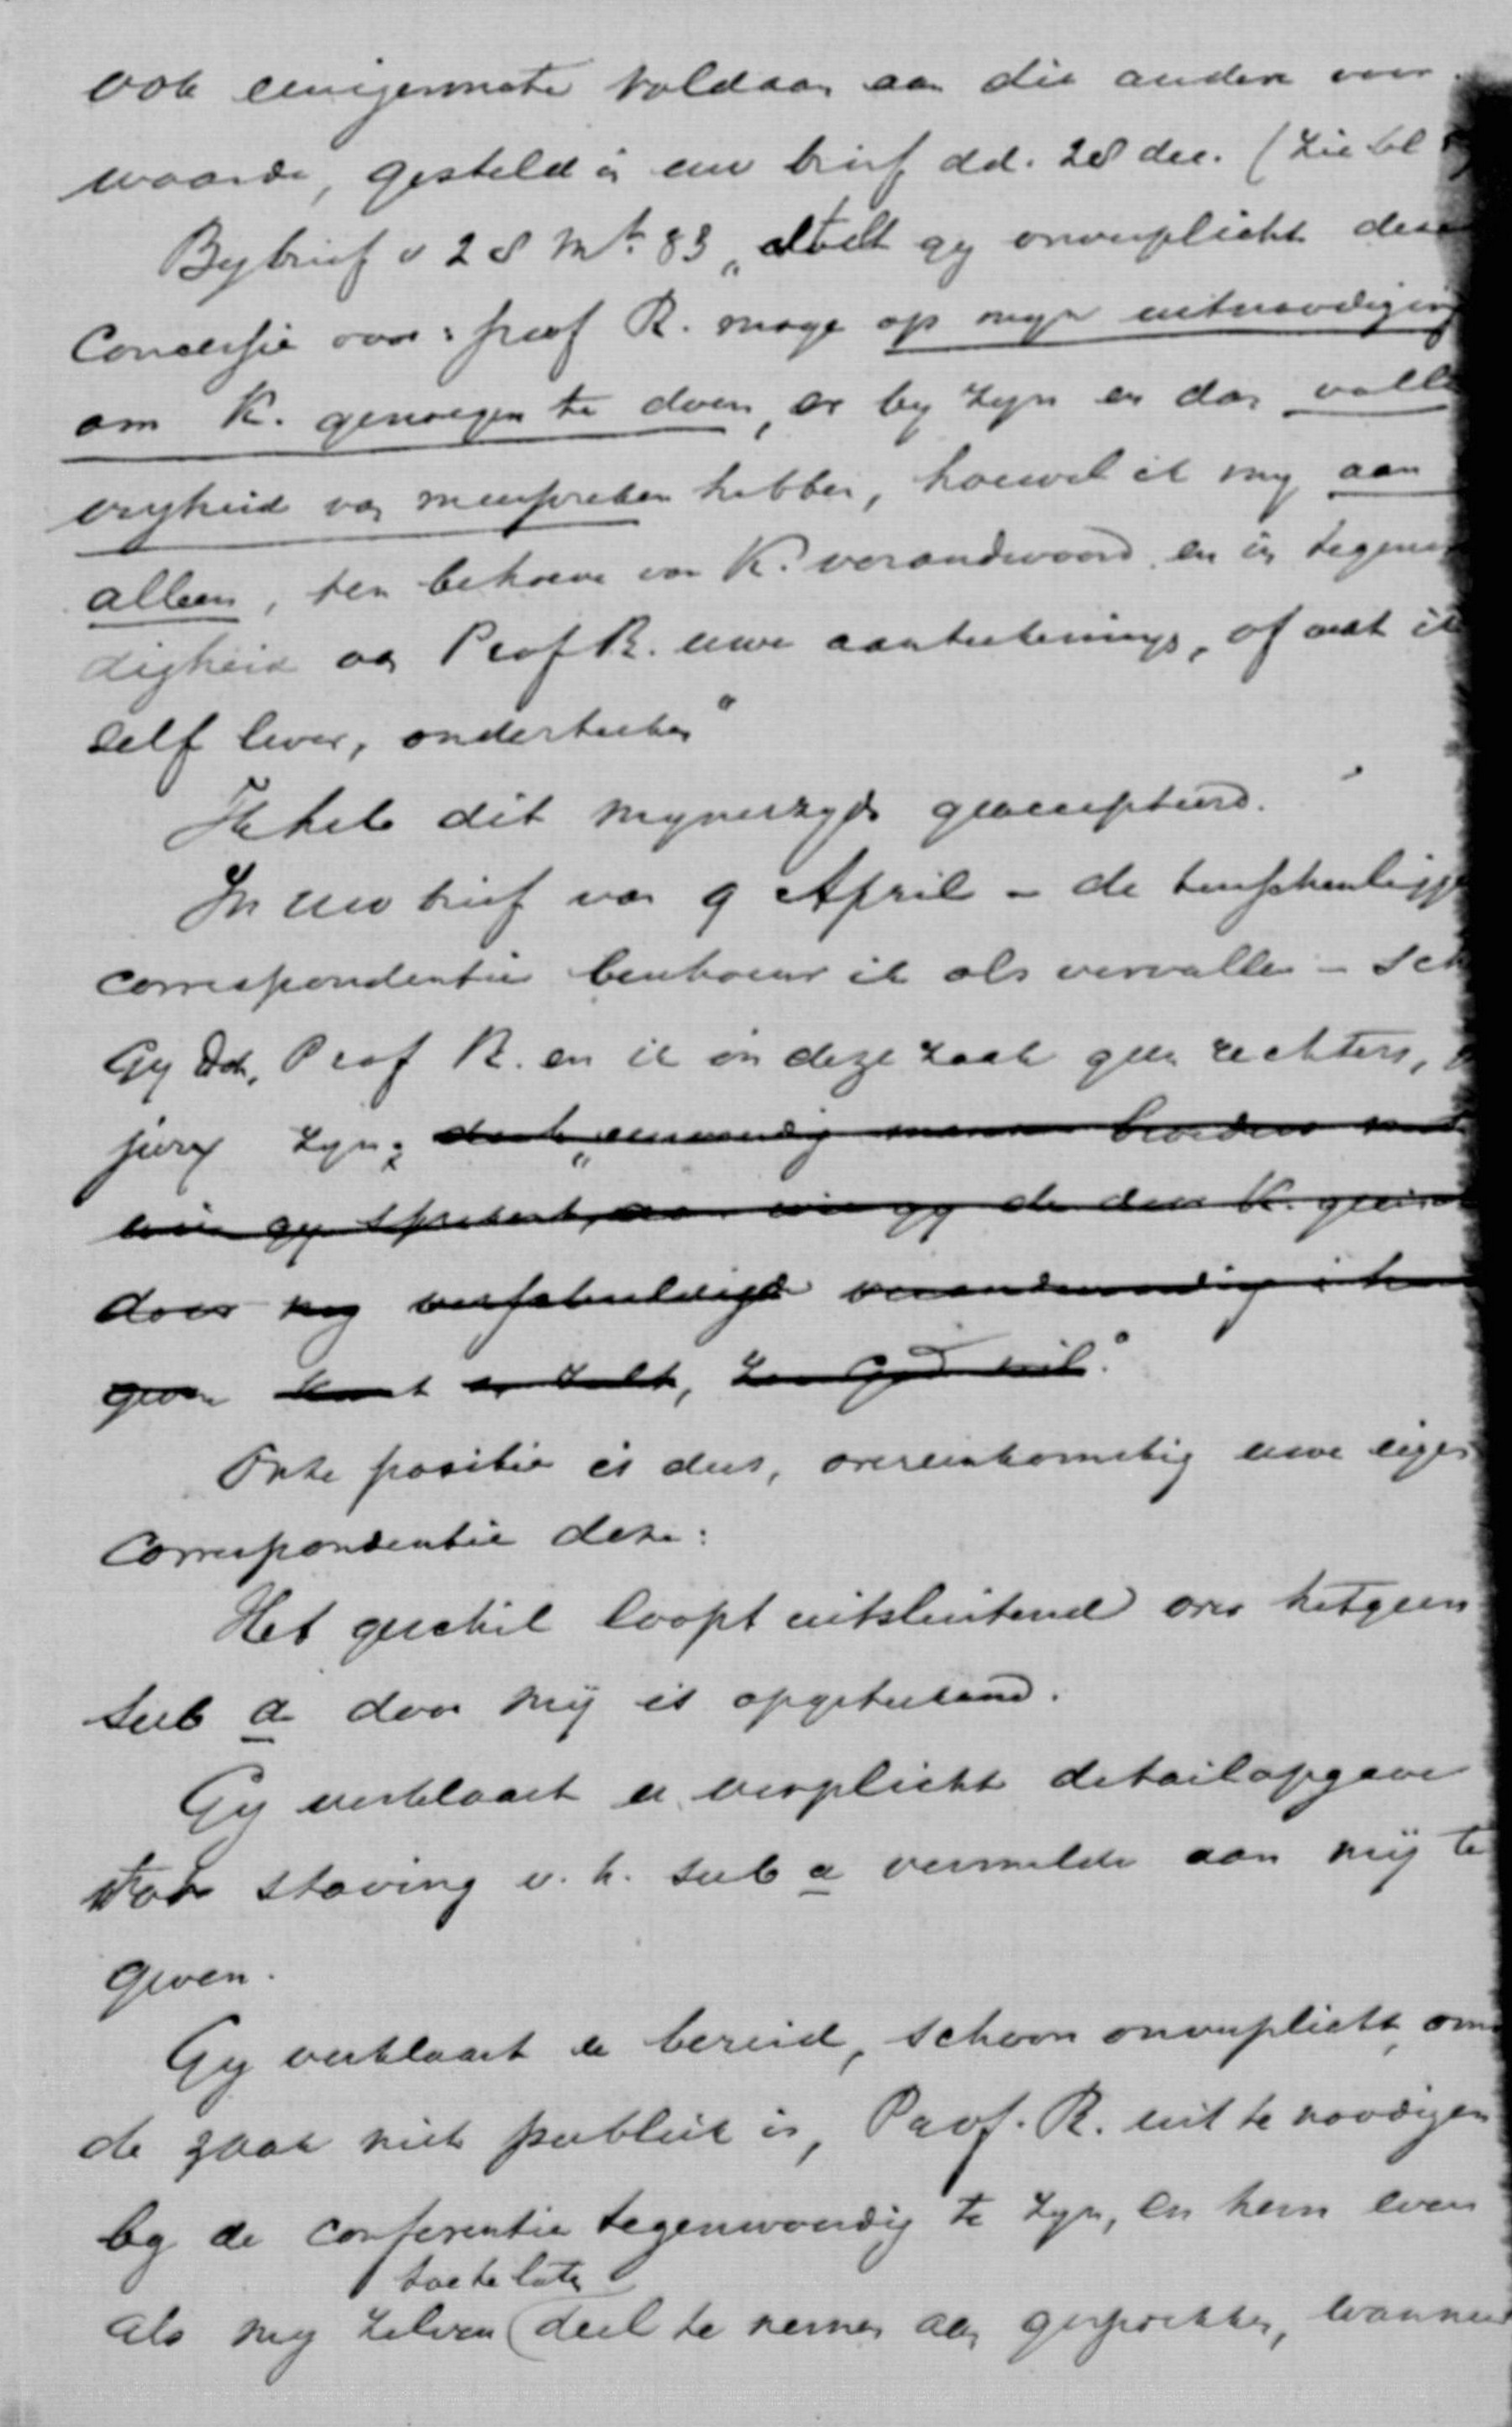 ook eenigermate voldaan aan die andere voor
waarde, gesteld in uw brief dd. 28 dec. (Zie bl
By brief v 28 Mrt. 83 „stelt gy onverplicht deze
Concessie voor: prof R. moge op myn uitnoodiging
om K. genoegen te doen, er by zyn en dan volle
vryheid van meespreken hebben, hoewel ik my aan
alleen, ten behoeve van K. verandwoord en in tegenwoor
digheid van Prof R. uwe aanteekening, of wat ik
self lever, onderteeken"
Ik heb dit mynerzyds geaccepteerd.
In uw brief van 9 April – de tusschenligge
correspondentie beschouw ik als vervallen – sch
Gy dat, Prof R. en ik in deze zaak geen rechters,
jury zyn;
door my
geven
Onze positie is dus, overeenkomstig uwe eigen
Correspondentie deze:
Het geschil loopt uitsluitend over hetgeen
sub a door mij is opgeteekend.
Gy verklaart u verplicht detailopgave
voor staving v. h. sub a vermelde aan mij te
geven.
Gy verklaart u bereid, schoon onverplicht, om
de zaak niet publiek is, Prof. R. uit te noodigen
by de conferentie tegenwoordig te zyn, en hem even
toe te laten
als my zelven deel te nemen aan gesprekken, wanneer